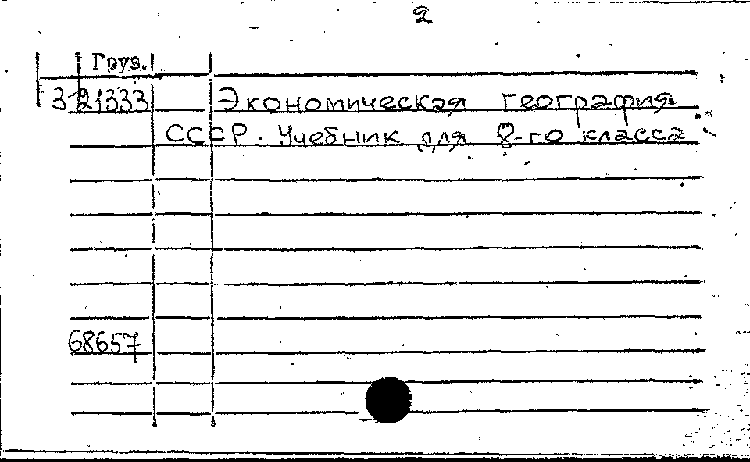 2
Груз.
3-21333 Экономическая география
СССР. Учебник для 8-го класса
68657